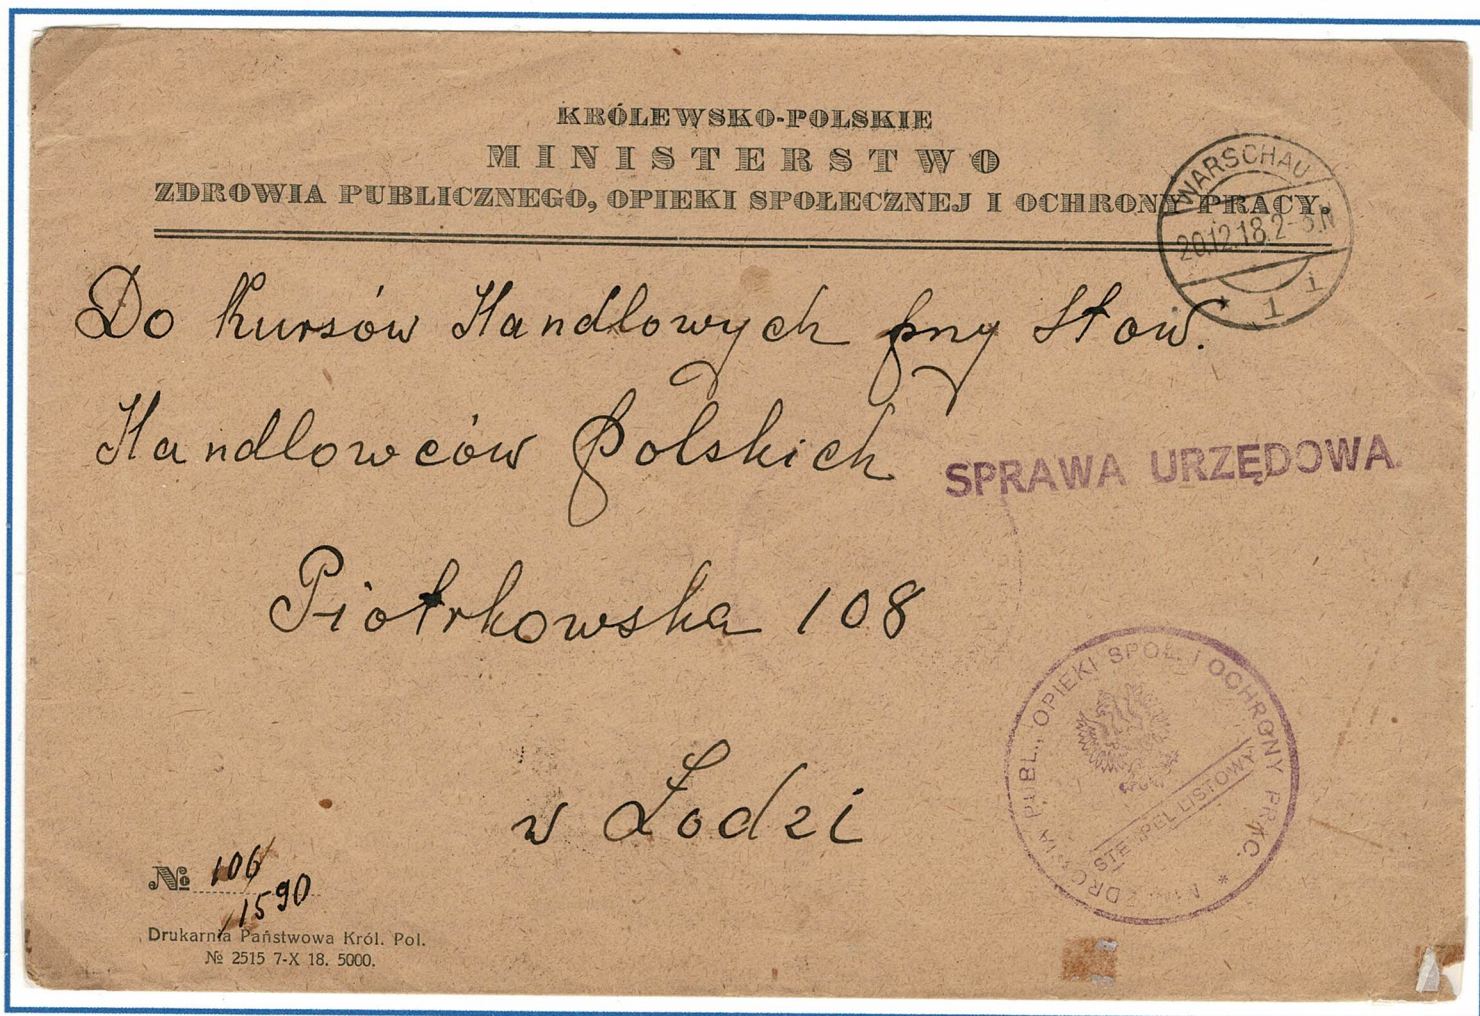 KRÓLEWSKO-POLSKIE
MINISTERSTWO
ZDROWIA PUBLICZNEGO, OPIEKI SPOŁECZNEJ I OCHRONY PRACY.
WARSCHAU
20.12.18.2-3.N
* 1 i
Do Kursów Handlowych przy Stow.
Handlowców Polskich
SPRAWA URZĘDOWA.
Piotrkowska 108
w Łodzi
ZDROWIA PUBL., OPIEKI SPOŁ. I OCHRONY PRAC. *
STEMPEL LISTOWY
№ 106/1590
Drukarnia Państwowa Król. Pol.
№ 2515 7-X 18. 5000.